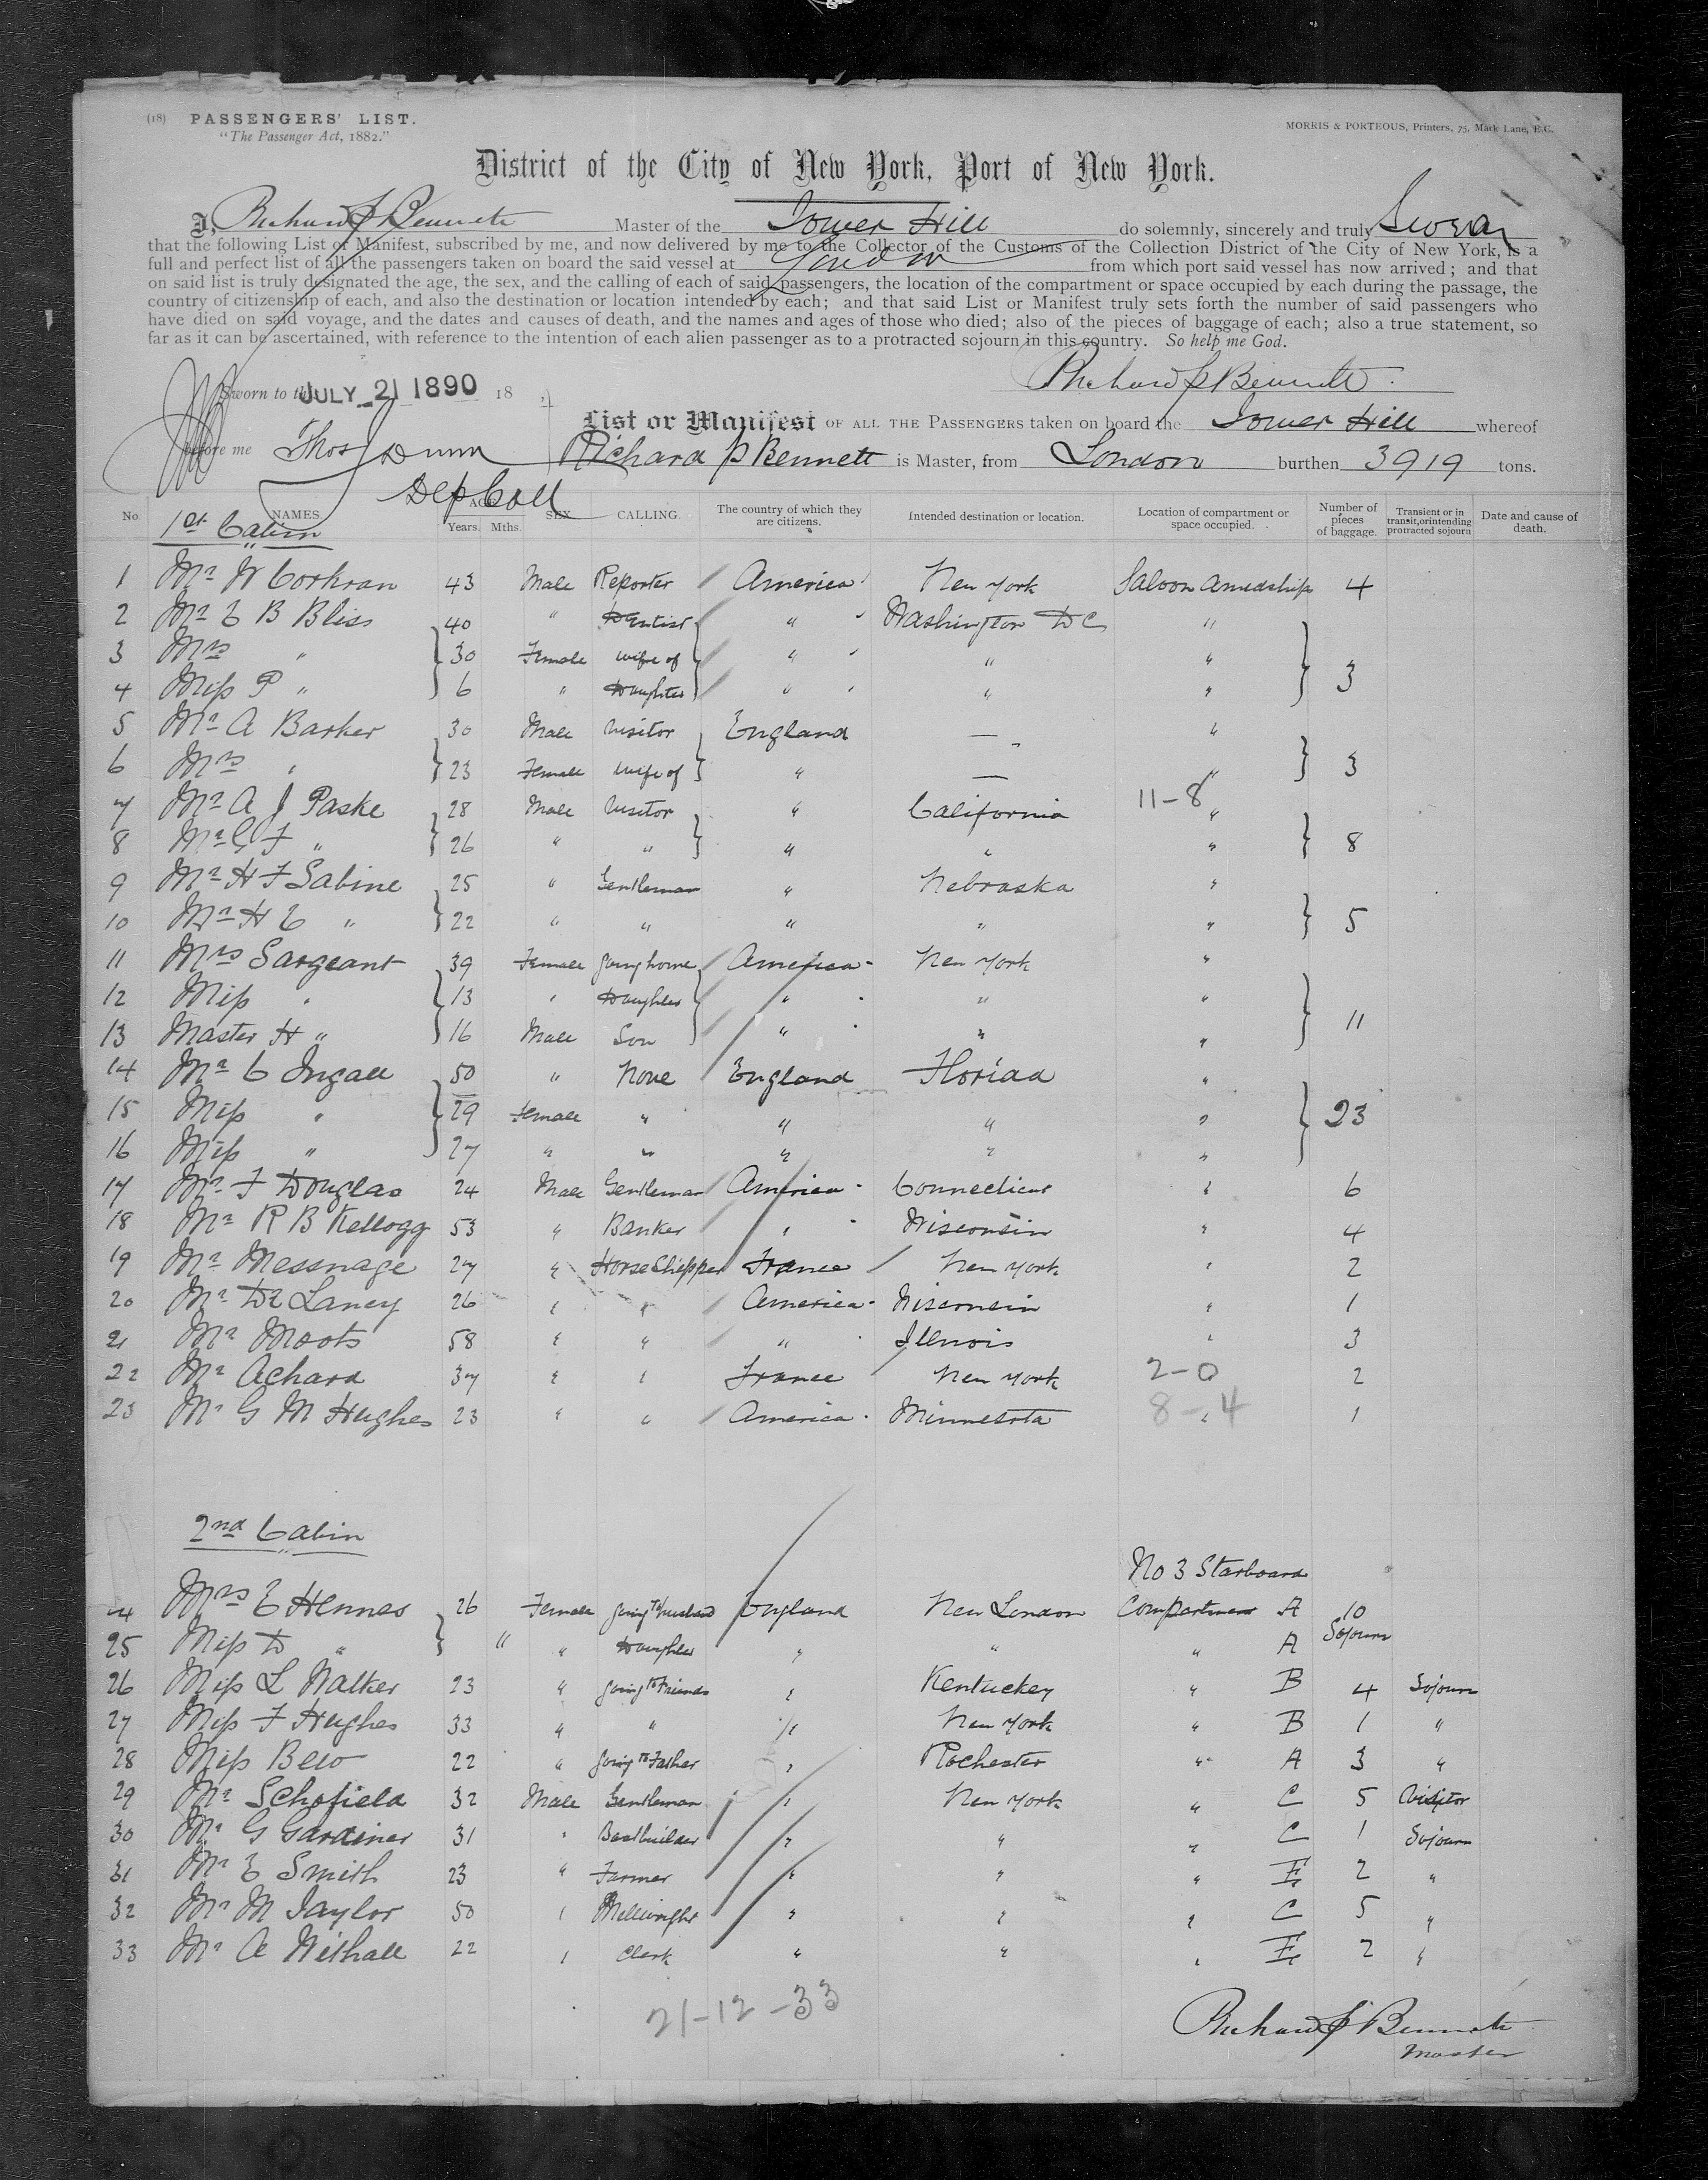 (18) PASSENGERS' LIST.
"The Passenger Act, 1882."
MORRIS & PORTEOUS, Printers, 75, Mark Lane, E.C.
District of the City of New York, Port of New York.
I, Richard P Bennett Master of the Tower Hill do solemnly, sincerely and truly Swear
that the following List or Manifest, subscribed by me, and now delivered by me to the Collector of the Customs of the Collection District of the City of New York, is a
full and perfect list of all the passengers taken on board the said vessel at London from which port said vessel has now arrived; and that
on said list is truly designated the age, the sex, and the calling of each of said passengers, the location of the compartment or space occupied by each during the passage, the
country of citizenship of each, and also the destination or location intended by each; and that said List or Manifest truly sets forth the number of said passengers who
have died on said voyage, and the dates and causes of death, and the names and ages of those who died; also of the pieces of baggage of each; also a true statement, so
far as it can be ascertained, with reference to the intention of each alien passenger as to a protracted sojourn in this country. So help me God.
Richard P Bennett.
Sworn to this JULY 21 1890 18 ,
List or Manifest OF ALL THE PASSENGERS taken on board the Tower Hill whereof
before me Thos J Dunn Richard P Bennett is Master, from London burthen 3919 tons.
Dep Coll
No. NAMES. AGE. Years. Mths. SEX. CALLING. The country of which they are citizens. Intended destination or location. Location of compartment or space occupied. Number of pieces of baggage. Transient or in transit, or intending protracted sojourn Date and cause of death.
1st Cabin
1 Mr W Corkran 43 Male Reporter America New York Saloon Amidships 4
2 Mr E B Bliss 40 " Dentist " Washington D C "
3 Mrs " 30 Female wife of " " " 3
4 Miss P " 6 " Daughter " " "
5 Mr A Barker 30 Male Visitor England — "
6 Mrs " 23 Female Wife of " — " 3
7 Mr A J Paske 28 Male Visitor " California 11-8 "
8 Mr G F " 26 " " " " " 8
9 Mr H F Sabine 25 " Gentleman " Nebraska "
10 Mr H C " 22 " " " " " 5
11 Mrs Sargeant 39 Female going home America New York "
12 Miss " 13 " Daughter " " "
13 Master H " 16 Male Son " " " 11
14 Mr C Ingall 50 " None England Florida "
15 Miss " 29 Female " " " " 23
16 Miss " 27 " " " " "
17 Mr F Douglas 24 Male Gentleman America Connecticut " 6
18 Mr R B Kellogg 53 " Banker " Wisconsin " 4
19 Mr Messnage 27 " Horse Shipper France New York " 2
20 Mr De Laney 26 " " America Wisconsin " 1
21 Mr Moots 58 " " " Illinois " 3
22 Mr Achard 37 " " France New York 2-0 2
23 Mr G M Hughes 23 " " America Minnesota 8-4 " 1
2nd Cabin
No 3 Starboard
24 Mrs E Hennes 26 Female going to husband England New London Compartment A 10
25 Miss D " " " Daughter " " " A Sojourn
26 Miss L Walker 23 " going to Friends " Kentuckey " B 4 Sojourn
27 Miss F Hughes 33 " " " New York " B 1 "
28 Miss Bew 22 " going to Father " Rochester " A 3 "
29 Mr Schofield 32 Male Gentleman " New York " C 5 Visitor
30 Mr G Gardiner 31 " Boatbuilder " " " C 1 Sojourn
31 Mr E Smith 23 " Farmer " " " E 2 "
32 Mr M Taylor 50 " Millwright " " " C 5 "
33 Mr A Withall 22 " Clerk " " " E 2 "
21-12-33
Richard P Bennett
Master